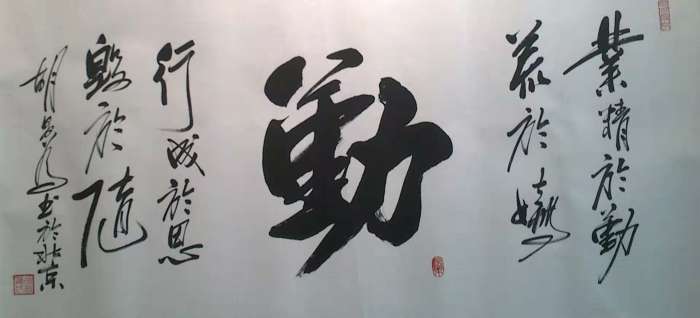 業精於勤
荒於嬉
勤
行成於思
毀於隨
胡 书於北京